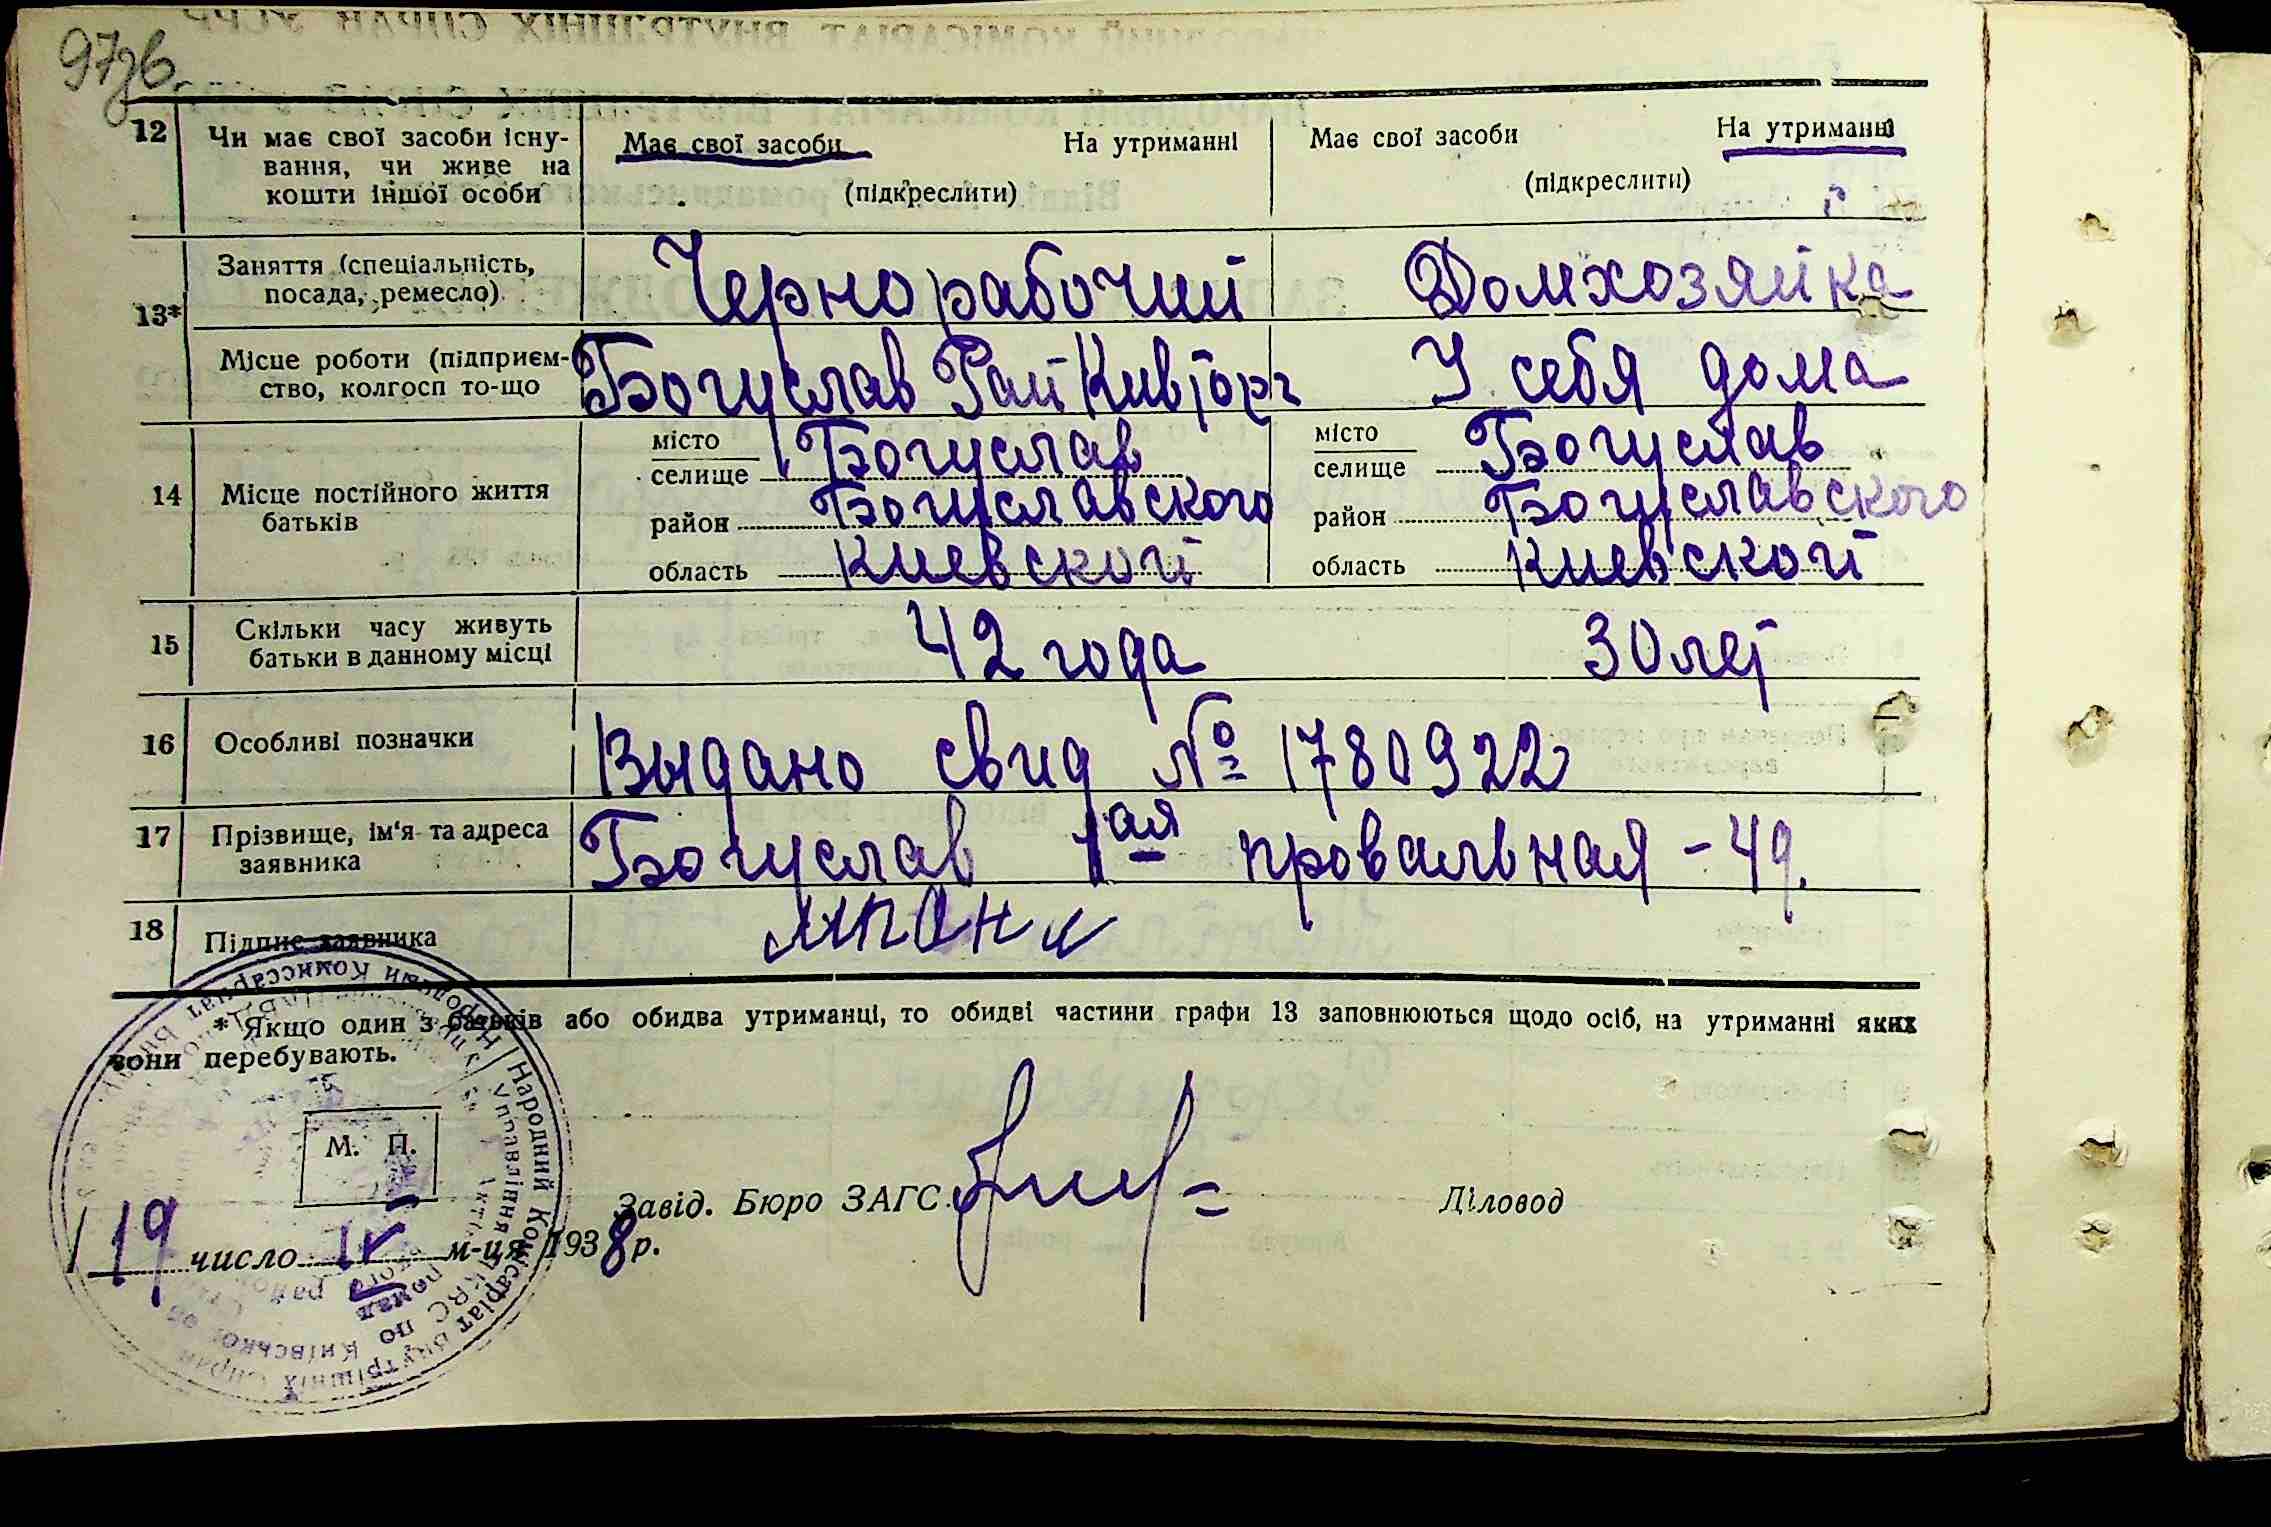 97зв.
12 Чи має свої засоби існу- Має свої засоби На утриманні Має свої засоби На утриманні
вання, чи живе на
кошти іншої особи (підкреслити) (підкреслити)
Заняття (спеціальність, Чернорабочий Домхозяйка
посада, ремесло)
13*
Місце роботи (підприєм- Богуслав У себя дома
ство, колгосп то-що
місто Богуслав місто Богуслав
селище селище
14 Місце постійного життя район Богуславского район Богуславского
батьків
область Киевской область Киевской
15 Скільки часу живуть 42 года 30 лет
батьки в данному місці
16 Особливі позначки Выдано свид № 1780922
17 Прізвище, ім'я та адреса Богуслав 1ая провальная - 49.
заявника
18 Підпис заявника
* Якщо один з батьків або обидва утриманці, то обидві частини графи 13 заповнюються щодо осіб, на утриманні яких
вони перебувають.
М. П.
Завід. Бюро ЗАГС Діловод
19 число м-ця 1938 р.